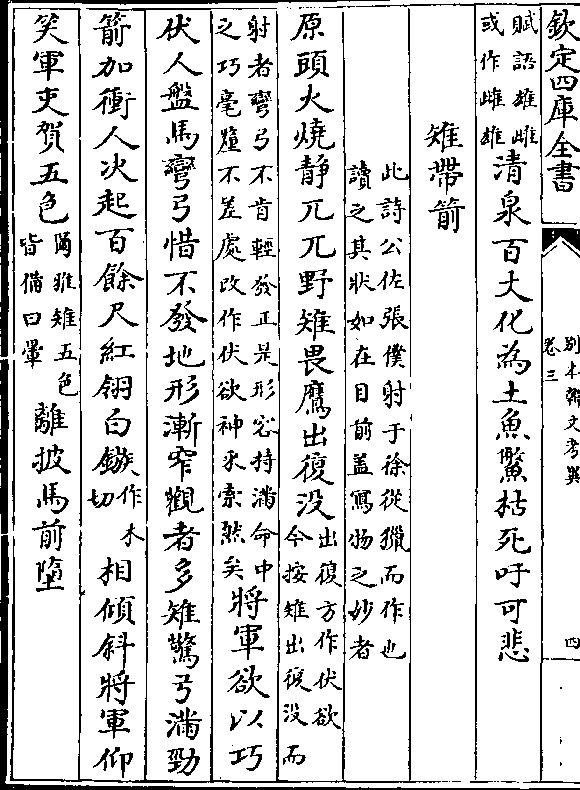 欽定四庫全書
別本韓文考異
卷三
四
賦語雄雌
或作雌雄
清泉百丈化為土魚鼈枯死吁可悲
雉帶箭
此詩公佐張僕射于徐從獵而作也
讀之其狀如在目前蓋寫物之妙者
原頭火燒静兀兀野雉畏鷹出復没
出復方作伏欲
今按雉出復没而
射者彎弓不肯輕發正是形容持滿命中
之巧毫釐不差處改作伏欲神采索然矣
將軍欲以巧
伏人盤馬彎弓惜不發地形漸窄觀者多雉驚弓滿勁
箭加衝人决起百餘尺紅翎白鏃
作木
切
相傾斜將軍仰
笑軍吏賀五色
爾雅雉五色
皆備曰翬
離披馬前墮